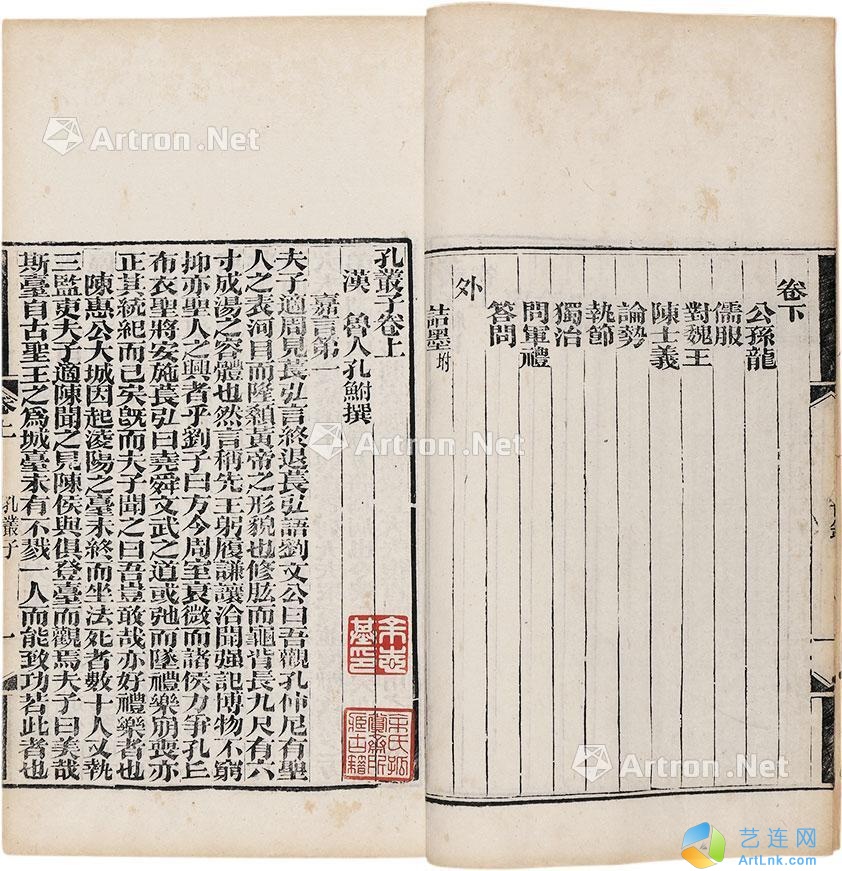 卷下
公孫龍
儒服
對魏王
陳士義
論勢
執節
獨治
問軍禮
答問
外
詰墨坿
孔叢子卷上
漢 魯人孔鮒撰
嘉言第一
夫子適周見萇弘言終退萇弘語劉文公曰吾觀孔仲尼有聖
人之表河目而隆顙黃帝之形貌也修肱而龜背長九尺有六
寸成湯之容體也然言稱先王躬履謙讓洽聞强記博物不窮
抑亦聖人之興者乎劉子曰方今周室衰微而諸侯力爭孔丘
布衣聖將安施萇弘曰堯舜文武之道或弛而墜禮樂崩喪亦
正其統紀而已矣旣而夫子聞之曰吾豈敢哉亦好禮樂者也
陳惠公大城因起淩陽之臺未終而坐法死者數十人又執
三監吏夫子適陳聞之見陳侯與俱登臺而觀焉夫子曰美哉
斯臺自古聖王之爲城臺未有不戮一人而能致功若此者也
卷上
孔叢子
一
余志
基印
余氏孤
賞齋所
Artron.Net
Artron.Net
Artron.Net
艺连网
ArtLnk.com